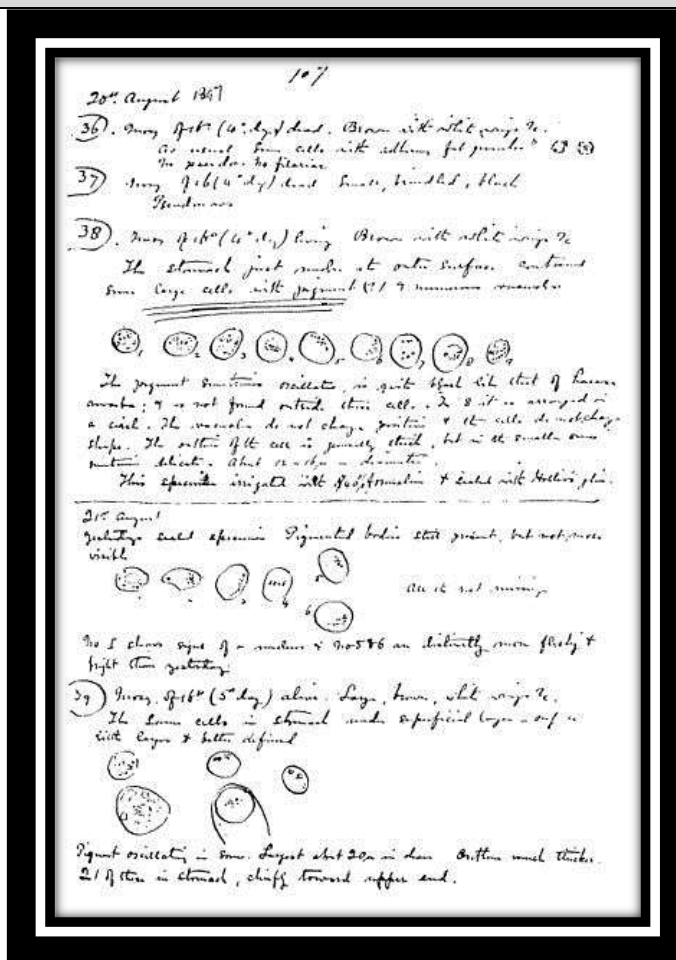 107
20th August 1897
36. Mosq. of 16th (4th day) dead. Brown with white wings &c.
As usual. Some cells with
No pseudos. No filariae
37 Mosq. of 16 (4th day) dead Small, brindled, black
38. Mosq. of 16th (4th day) living Brown with white wings &c
The stomach just under its outer surface contained
some large cells with pigment (?) & numerous vacuoles
1 2 3 4 5 6 7 8 9
The pigment sometimes oscillates, is quite black like that of haem
amoebae; & is not found outside these cells. In 8 it is arranged in
a circle. The vacuoles do not change position & the cells do not change
shape. The outline of the cell is generally thick, but in the smaller ones
sometimes delicate. About in diameter.
This specimen irrigated with 40% formalin & sealed with Hollis's glue.
21st August
Yesterday's sealed specimen Pigmented bodies still present, but not more
visible
3 4 5 6
No 1 shows signs of a nucleus & Nos 5 & 6 are distinctly more fleshy &
bright than yesterday
39 Mosq. of 16th (5th day) alive. Large, brown, white wings &c.
The same cells in stomach under superficial layer
but larger & better defined
Pigment oscillating in some. Largest about 20μ in diam Outline much thicker.
21 of these in stomach, chiefly toward upper end.